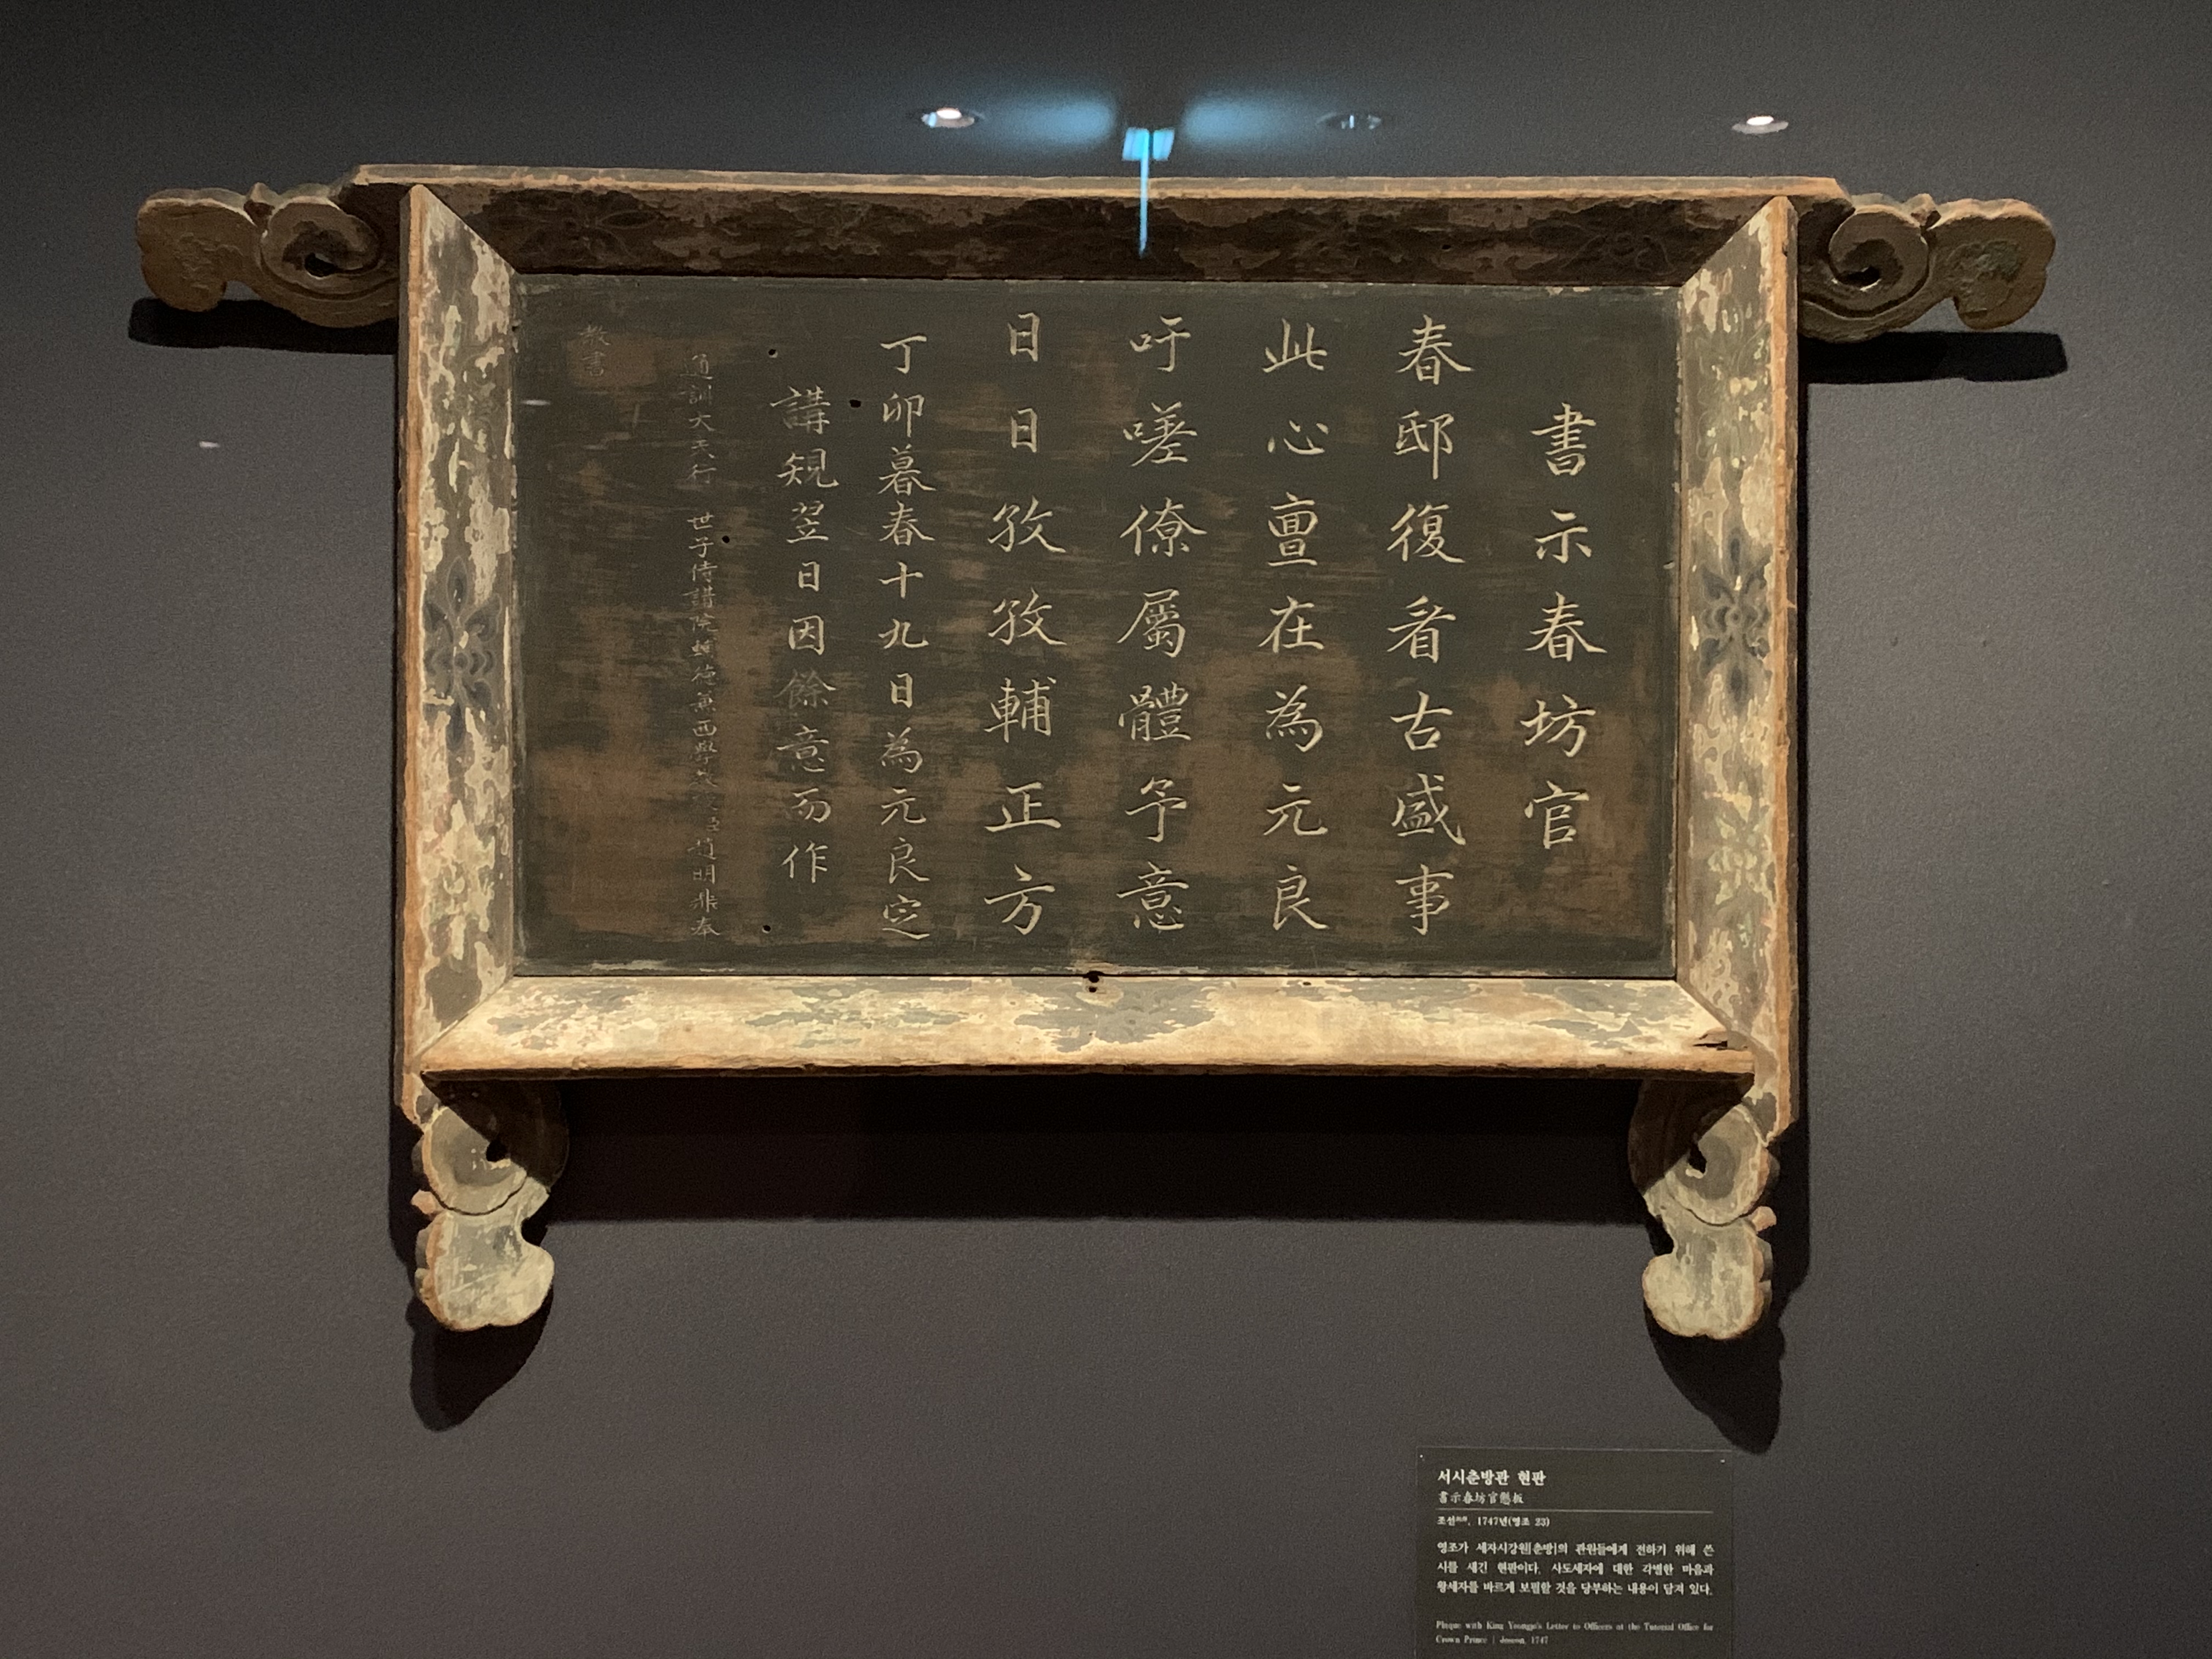 書示春坊官
春邸復看古盛事
此心亶在為元良
吁嗟僚屬體予意
日日孜孜輔正方
丁卯暮春十九日為元良定
講規翌日因餘意而作
通訓大夫行 世子侍講院輔德兼西學 臣趙明鼎奉
教書
서시춘방관 현판
書示春坊官懸板
조선, 1747년(영조 23)
영조가 세자시강원[춘방]의 관원들에게 전하기 위해 쓴
시를 새긴 현판이다. 사도세자에 대한 각별한 마음과
왕세자를 바르게 보필할 것을 당부하는 내용이 담겨 있다.
Plaque with King Yeongjo's Letter to Officers at the Tutorial Office for
Crown Prince | Joseon, 1747